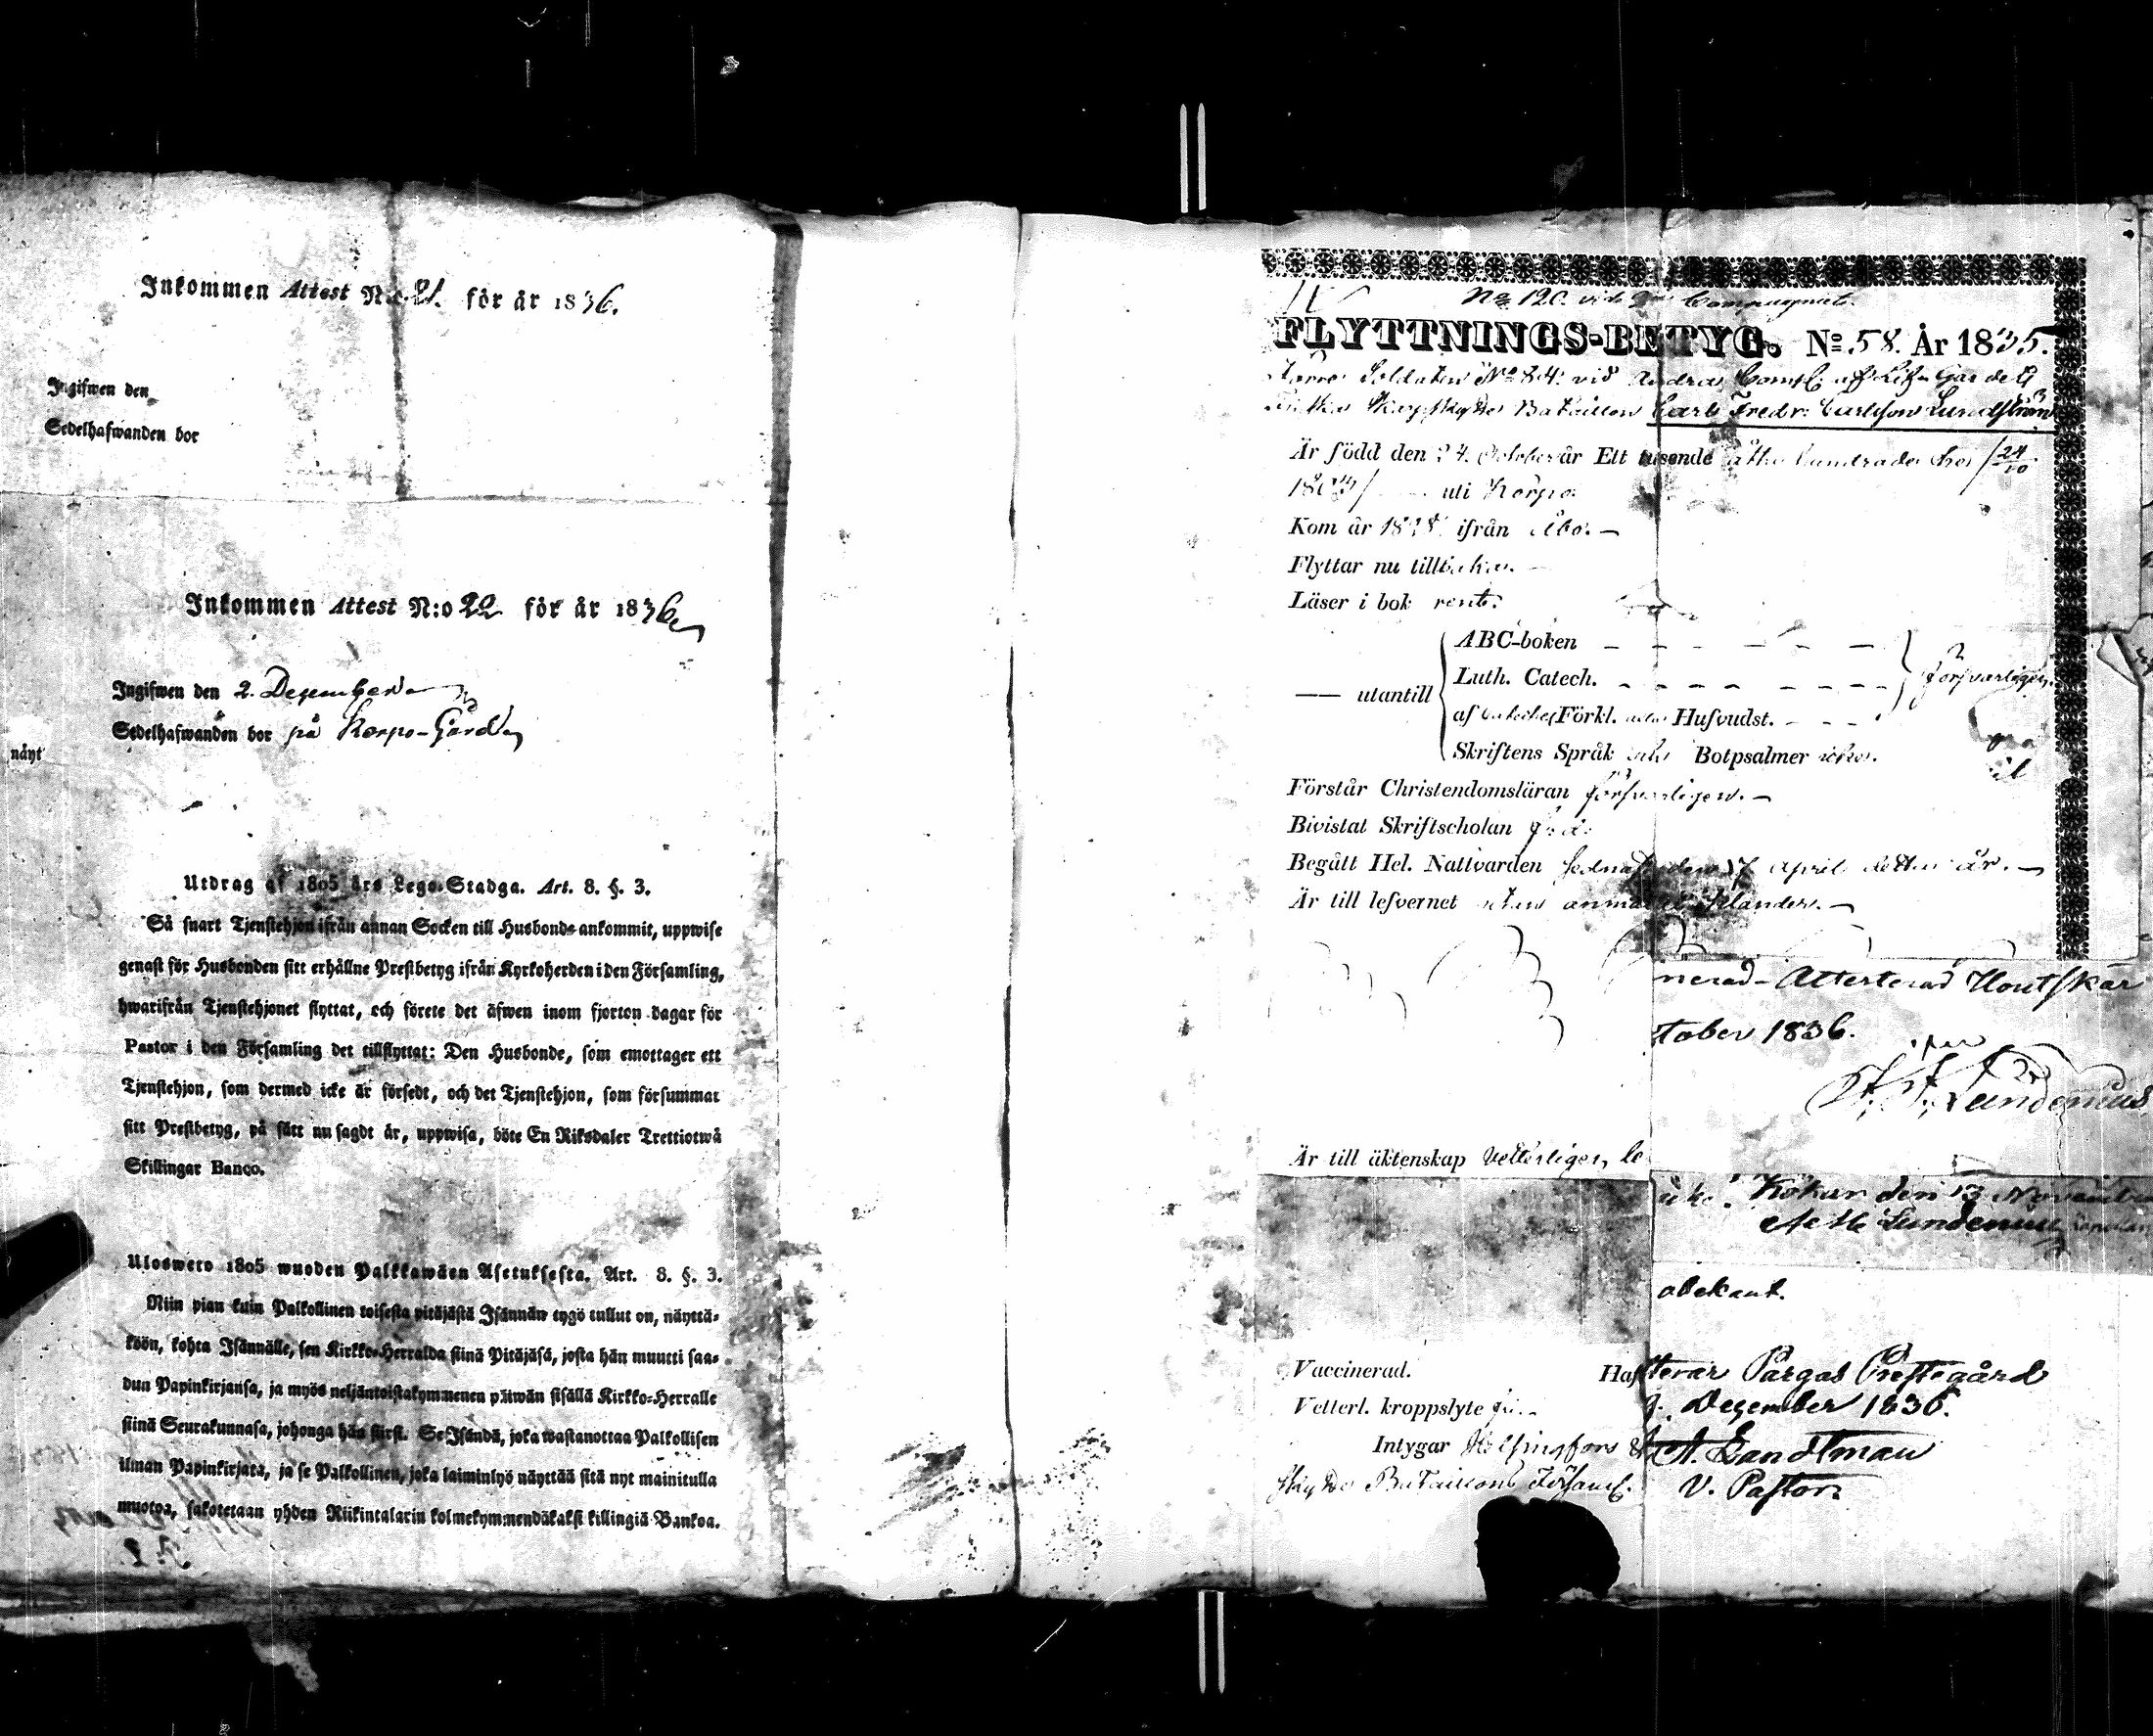 Inkommen Attest N:o 21. för år 1836.
Ingifwen den
Sedelhafwanden bor
Inkommen Attest N:o 22 för år 1836
Ingifwen den 2. December
Sedelhafwanden bor på Korpo-Gård
nåyt
Utdrag af 1805 års Lego-Stadga. Art. 8. §. 3.
Så snart Tjenstehjon ifrån annan Socken till Husbonde ankommit, uppwise
genast för Husbonden sitt erhållne Prestbetyg ifrån Kyrkoherden i den Församling,
hwarifrån Tjenstehjonet flyttat, och förete det äfwen inom fjorton dagar för
Pastor i den Församling det tillflyttat: Den Husbonde, som emottager ett
Tjenstehjon, som dermed icke är försedt, och det Tjenstehjon, som försummar
sitt Prestbetyg, på sätt nu sagdt är, uppwisa, böte En Riksdaler Trettiotwå
Skillingar Banco.
Ulosweto 1805 wuoden Palkkawäen Asetuksesta. Art. 8. §. 3.
Niin pian kuin Palkollinen toisesta pitäjästä Isännän tygö tullut on, näyttä-
köön, kohta Isännälle, sen Kirkko-Herralda siinä Pitäjäsä, josta hän muutti saa-
dun Papinkirjansa, ja myös neljäntoistakymmenen päiwän sisällä Kirkko-Herralle
siinä Seurakunnasa, johonga hän siirsi. Se Isändä, joka wastanottaa Palkollisen
ilman Papinkirjata, ja se Palkollinen, joka laiminlyö näyttää sitä nyt mainitulla
muotoa, sakotetaan yhden Riikintalarin kolmekymmendäkaksi killingiä Bankoa.
No 120 vid Compagniet.
FLYTTNINGS-BETYG. No 58. År 1835.
Soldaten No 84 vid Andra Comp. af Lif-Gardets
Bataillon Carl Fredr: Carlsson Lundström
Är född den 24. October år Ett tusende åtta hundrade tre / 24/10
1803 / uti Korpo.
Kom år 18 ifrån Åbo. —
Flyttar nu tillbaka. —
Läser i bok rent.
ABC-boken — — — — —
— utantill Luth. Catech. — — — — — försvarligen.
af Förkl. Hufvudst. — — —
Skriftens Språk Botpsalmer
Förstår Christendomsläran försvarligen. —
Bivistat Skriftscholan
Begått Hel. Nattvarden sednast den 17 April detta år. —
Är till lefvernet utan anmärkt —
nerad — Attesterad Houtskär
tober 1836.
Lundenius
Är till äktenskap Vetterligen le
Kökar den 13 November
Lundenius
obekant.
Vaccinerad. Haf
terar Pargas Prestegård
Vetterl. kroppslyte
December 1836.
Intygar Helsingfors
A. Sandtman
Bataillons Församl.
V. Pastor